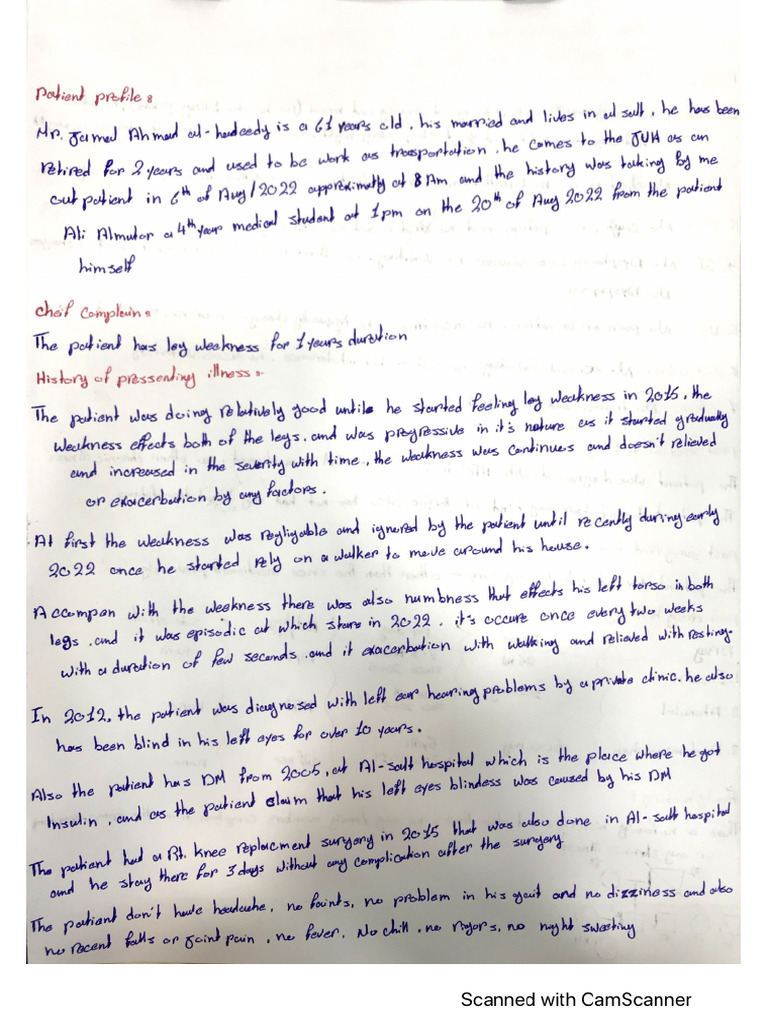 Patient profile :
Mr. Jamal Ahmad al-hadeedy is a 61 years old, his married and lives in al salt, he has been
retired for 2 years and used to be work as trasportation, he comes to the JUH as an
out patient in 6th of Aug/2022 approximatly at 8 Am and the history was taking by me
Ali Almutar a 4th year medical student at 1 pm on the 20th of Aug 2022 from the patient
himself
Chef Complain :
The patient has leg weakness for 1 years duration
History of pressenting illness :-
The patient was doing relatively good untile he started feeling leg weakness in 2015, the
weakness effects both of the legs, and was progressive in it's nature as it started gradually
and increased in the severity with time, the weakness was continues and doesn't relieved
or exacerbation by any factors.
At first the weakness was negligable and ignored by the patient until recently during early
2022 once he started rely on a walker to move around his house.
Accompan with the weakness there was also numbness that effects his left torso in both
legs, and it was episodic at which stare in 2022, it's occure once every two weeks
with a duration of few seconds, and it exacerbation with walking and relieved with resting.
In 2012, the patient was diagnosed with left ear hearing problems by a private clinic, he also
has been blind in his left eyes for over 10 years.
Also the patient has DM from 2005, at Al-salt hospital which is the place where he got
Insulin, and as the patient claim that his left eyes blindess was caused by his DM
The patient had a Rt. knee replacment surgory in 2015 that was also done in Al-salt hospital
and he stay there for 3 days without any complication after the surgery
The patient don't have headache, no faints, no problem in his gait and no dizziness and also
no recent falls or joint pain, no fever, No chill, no rigors, no night sweating
Scanned with CamScanner